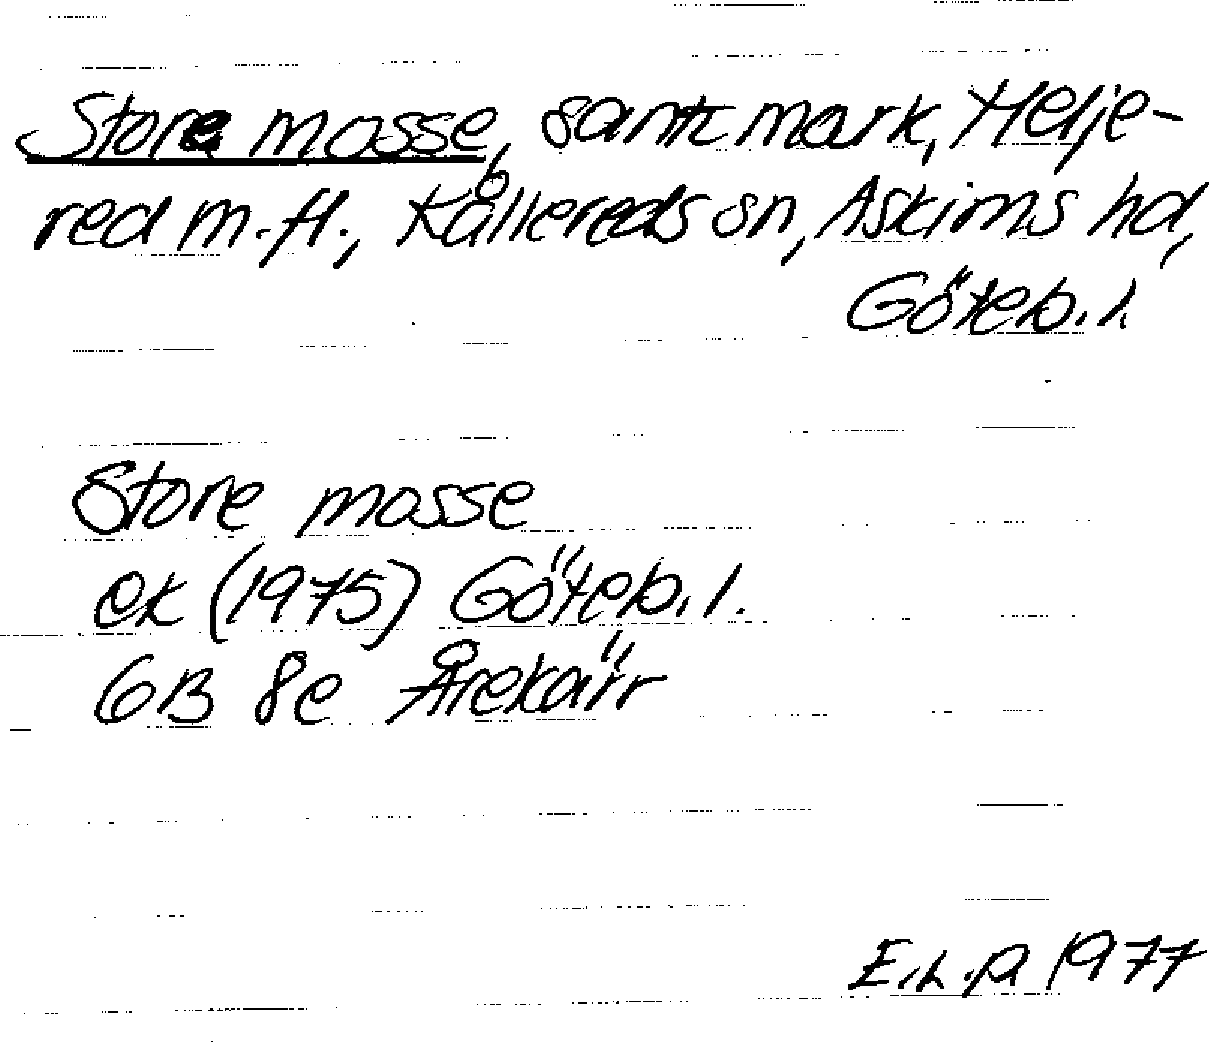 Store mosse, sank mark, Helje-
red m.fl., Kållereds sn, Askims hd,
Göteb. l.
Store mosse
ek (1975) Göteb. l.
6B 8e Årekärr
E.L.P. 1977